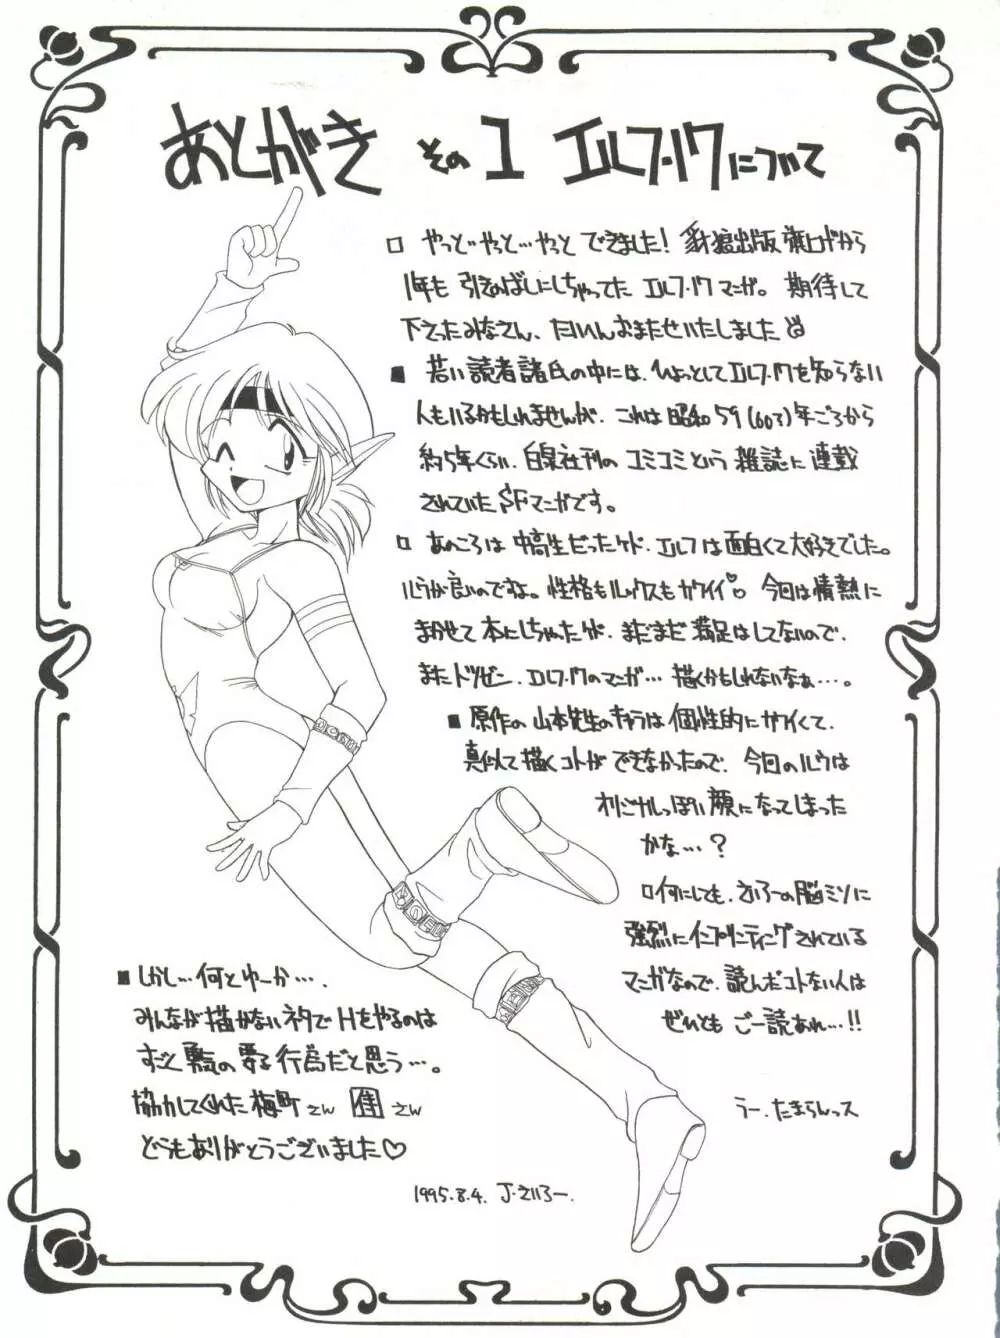 あとがき その1 エルフ・17について
□ やっと…やっと…やっと できました! 豺狼出版 旗上げから
1年も 引きのばしにしちゃってた エルフ・17マンガ。 期待して
下さったみなさん、たいへんおまたせいたしました
■ 若い読者諸氏の中には、ひょっとしてエルフ・17を知らない
人もいるかもしれませんが、これは昭和59(60?)年ごろから
約5年くらい、白泉社刊のコミコミという雑誌に連載
されていたSFマンガです。
□ あのころは中高生だったケド、エルフは面白くて大好きでした。
ルウが良いのですね。性格もルックスもカワイイ♡ 今回は情熱に
まかせて本にしちゃったケド、まだまだ満足はしてないので、
またドツゼン、エルフ・17のマンガ… 描くかもしれないなぁ…。
■ 原作の山本先生のキャラは個性的にカワイくて、
真似て描くコトができなかったので、今回のルウは
オリジナルっぽい顔になってしまった
かな…?
□何にしても、さいろーの脳ミソに
強烈にインプリンティングされている
マンガなので、読んだコトない人は
ぜひともご一読あれ…!!
うー、たまらんっス
■しかし…何とゆーか…、
みんなが描かないネタでHをやるのは
すごく勇気の要る行為だと思う…。
協力してくれた梅町さん 佳さん
どうもありがとうございました♡
1995.8.4. J・さいろー.